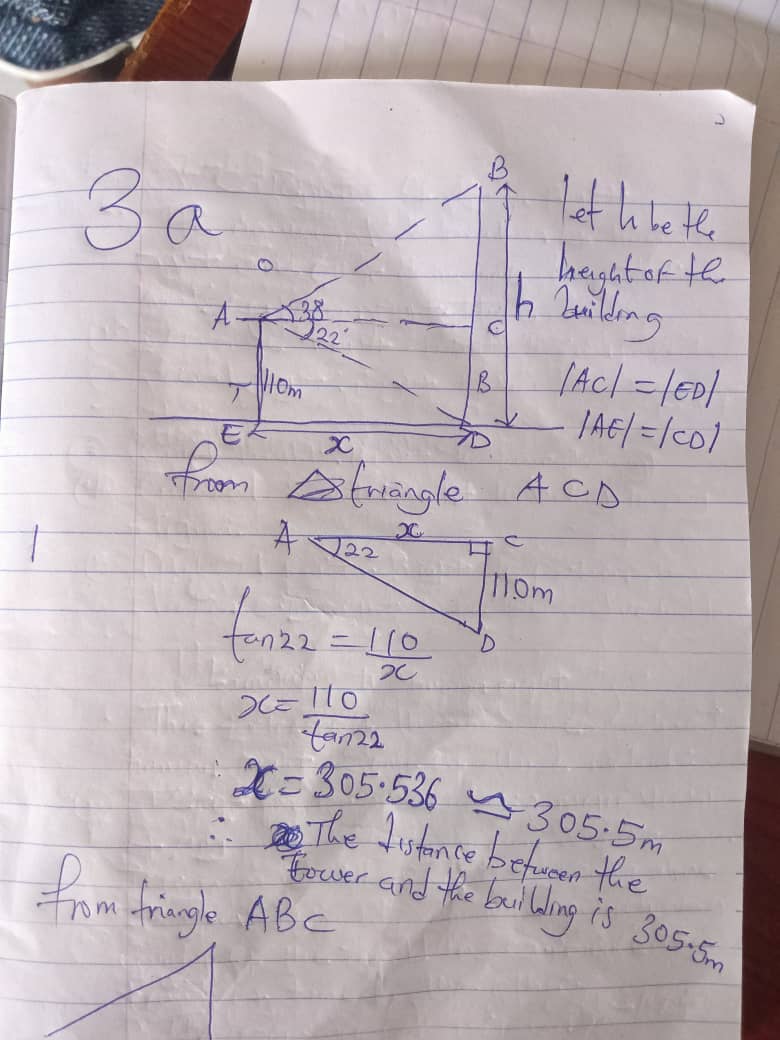 3 a
B
let h be the
height of the
building
A
38
22
C
h
110m
B
|AC| = |ED|
E
x
D
|AE| = |CD|
from triangle ACD
A
x
C
22
110m
D
tan22 = 110/x
x = 110/tan22
x = 305.536 ≃ 305.5m
∴ The distance between the
tower and the building is 305.5m
from triangle ABC